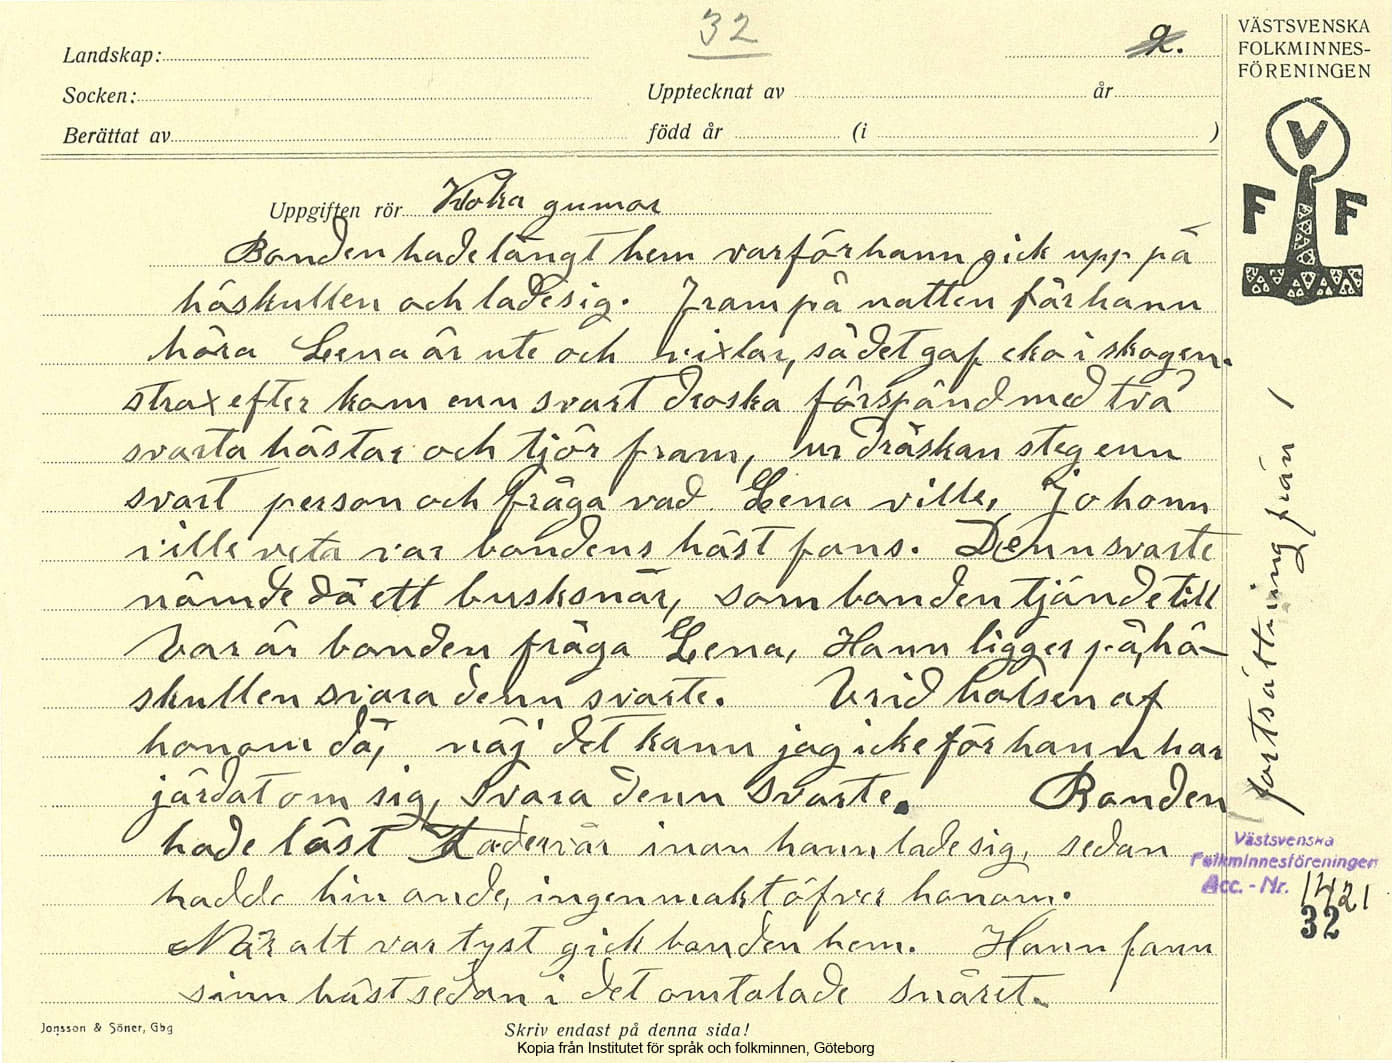 32
2.
VÄSTSVENSKA
FOLKMINNES-
FÖRENINGEN
V
F F
Landskap:
Socken:
Upptecknat av
år
Berättat av
född år
(i
)
Uppgiften rör Kloka gumor
Bonden hade långt hem varför hann gick upp på
höskullen och ladesig. Fram på natten får hann
höra Lena är ute och vixlar, så det gaf eko i skogen.
strax efter kom enn svart droska förspänd med två
svarta hästar och tjör fram, ur dråskan steg enn
svart person och fråga vad Lena ville, Jo honn
ville veta var bondens häst fans. Denn svarte
nämde då ett busksnår, som bonden tjände till
Var är bonden fråga Lena, Hann ligger på hö-
skullen svara denn svarte. Vrid halsen af
honom då, näj det kann jag icke för hann har
järdat om sig, svara denn svarte. Bonden
hade läst Fadervår inan hann lade sig, sedan
hadde hin onde, ingen makt öfver honom.
När alt var tyst gick bonden hem. Hann fann
sinn häst sedan i det omtalade snåret.
fortsättning från 1
Västsvenska
Folkminnesföreningen
Acc.-Nr. 1421
32
Jonsson & Söner, Gbg
Skriv endast på denna sida!
Kopia från Institutet för språk och folkminnen, Göteborg